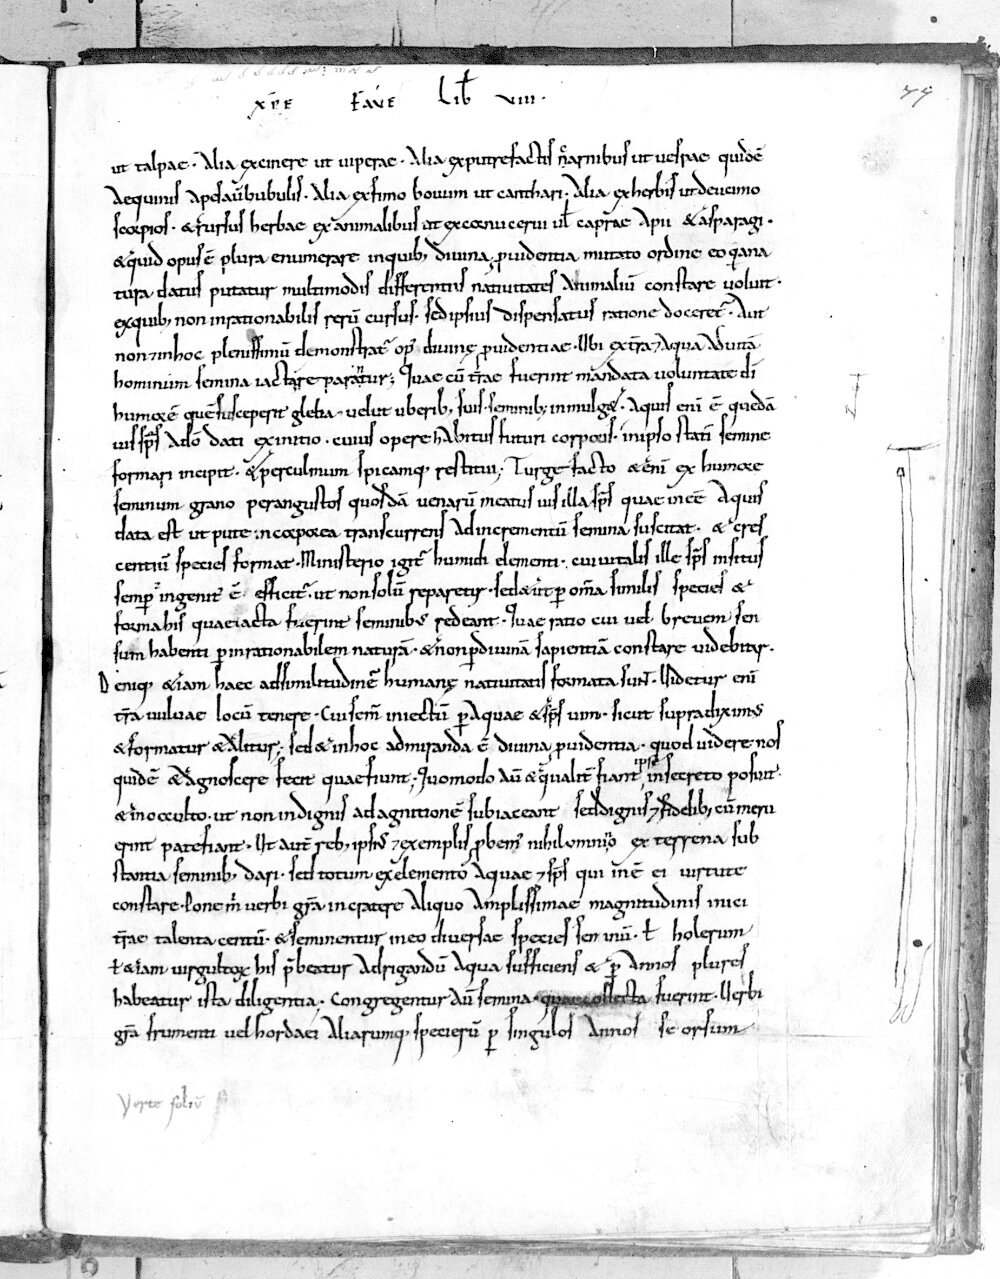 xp̄e faue Lib̄ viii·
77
ut talpae· Alia excinere ut uiperae· Alia exputrefactis carnibus ut uespae quidē
Aequinis apesaū bubulis· Alia exfimo bouum ut canthari· Alia exherbis ut deucimo
scorpios· & rursus herbae exanimalibus ut excornu cerui uł capreae Apii & asparagi·
& quid opus ē plura enumerare inquib; diuina ꝓuidentia mutato ordine eo quana
tura datus putatur multimodis differentiis natiuitates Animaliū constare uoluit·
exquib; non inrationabilis rerū cursus· sedipsius dispensatus ratione docer&· Aut
non ⁊ inhoc plenissimū demonstrat̄ op' diuinę ꝓuidentiae· Ubi ex tr̄a ⁊ Aqua Aduitā
hominum semina iactare parantur; Quae cū tr̄ae fuerint mandata uoluntate dī
humorē quē susceperit gleba· uelut uberib; suis· seminib; inmulg&· Aquis enī ē quedā
uis sp̄s Adō dati exinitio· cuius opere habitus futuri corporis· inipso statī semine
formari incipit· & perculmum spicamq; restitui; Turgefacto &enī ex humore
seminum grano perangustos quosdā uenarū meatus uis illa sp̄s quae inēē Aquis
data est ut pute incorporea transcurrens Adincrementū semina suscitat· & cres
centiū species format· Ministerio igit̄ humidi elementi· cui uitalis ille sp̄s insitus
semp̄ ingenit' ē· efficit̄· ut nonsolū reparetur· sed & ut ꝑ omā similis species &
forma his quae iacta fuerint seminibus redeant· Quae ratio cui uel breuem sen
sum habenti ꝑ inrationabilem naturā· & non ꝑ diuinā sapientiā constare uidebitur·
Deniq; &iam haec adsimilitudinē humanę natiuitatis formata sunt· Uidetur enī
tr̄a uuluae locū tenere· Cui sem̄ iniectū ꝑ Aquae & sp̄s uim· sicut supradiximus
& formatur & Alitur; sed & inhoc admiranda ē diuina ꝓuidentia· quod uidere nos
quidē & Agnoscere fecit quae fiunt; Quomodo Aū & qualit̄ fiant ipse insecreto posuit·
& in occulto· ut non indignis ad agnitionē subiaceant sed dignis ⁊ fidelib; cū meru
erint patefiant· Ut autē reb; ipsis ⁊ exemplis ꝓbem' nihil omnino ex terrena sub
stantia seminib; dari· sed totum ex elemento Aquae ⁊ sp̄s qui inē ei uirtute
constare· Pone m̄ uerbi gr̄a in cratere Aliquo Amplissimae magnitudinis inici
tr̄ae talenta centū· & seminentur in eo diuersae species seminū· ł holerum
ł &iam uirgultorum his p̄beatur Adrigandū Aqua sufficiens & ꝑ Annos plures
habeatur ista diligentia· Congregentur Aū semina· quae collecta fuerint· Uerbi
gr̄a frumenti uel hordaei Aliarumq; specierū ꝑ singulos Annos seorsum
Verte foliū